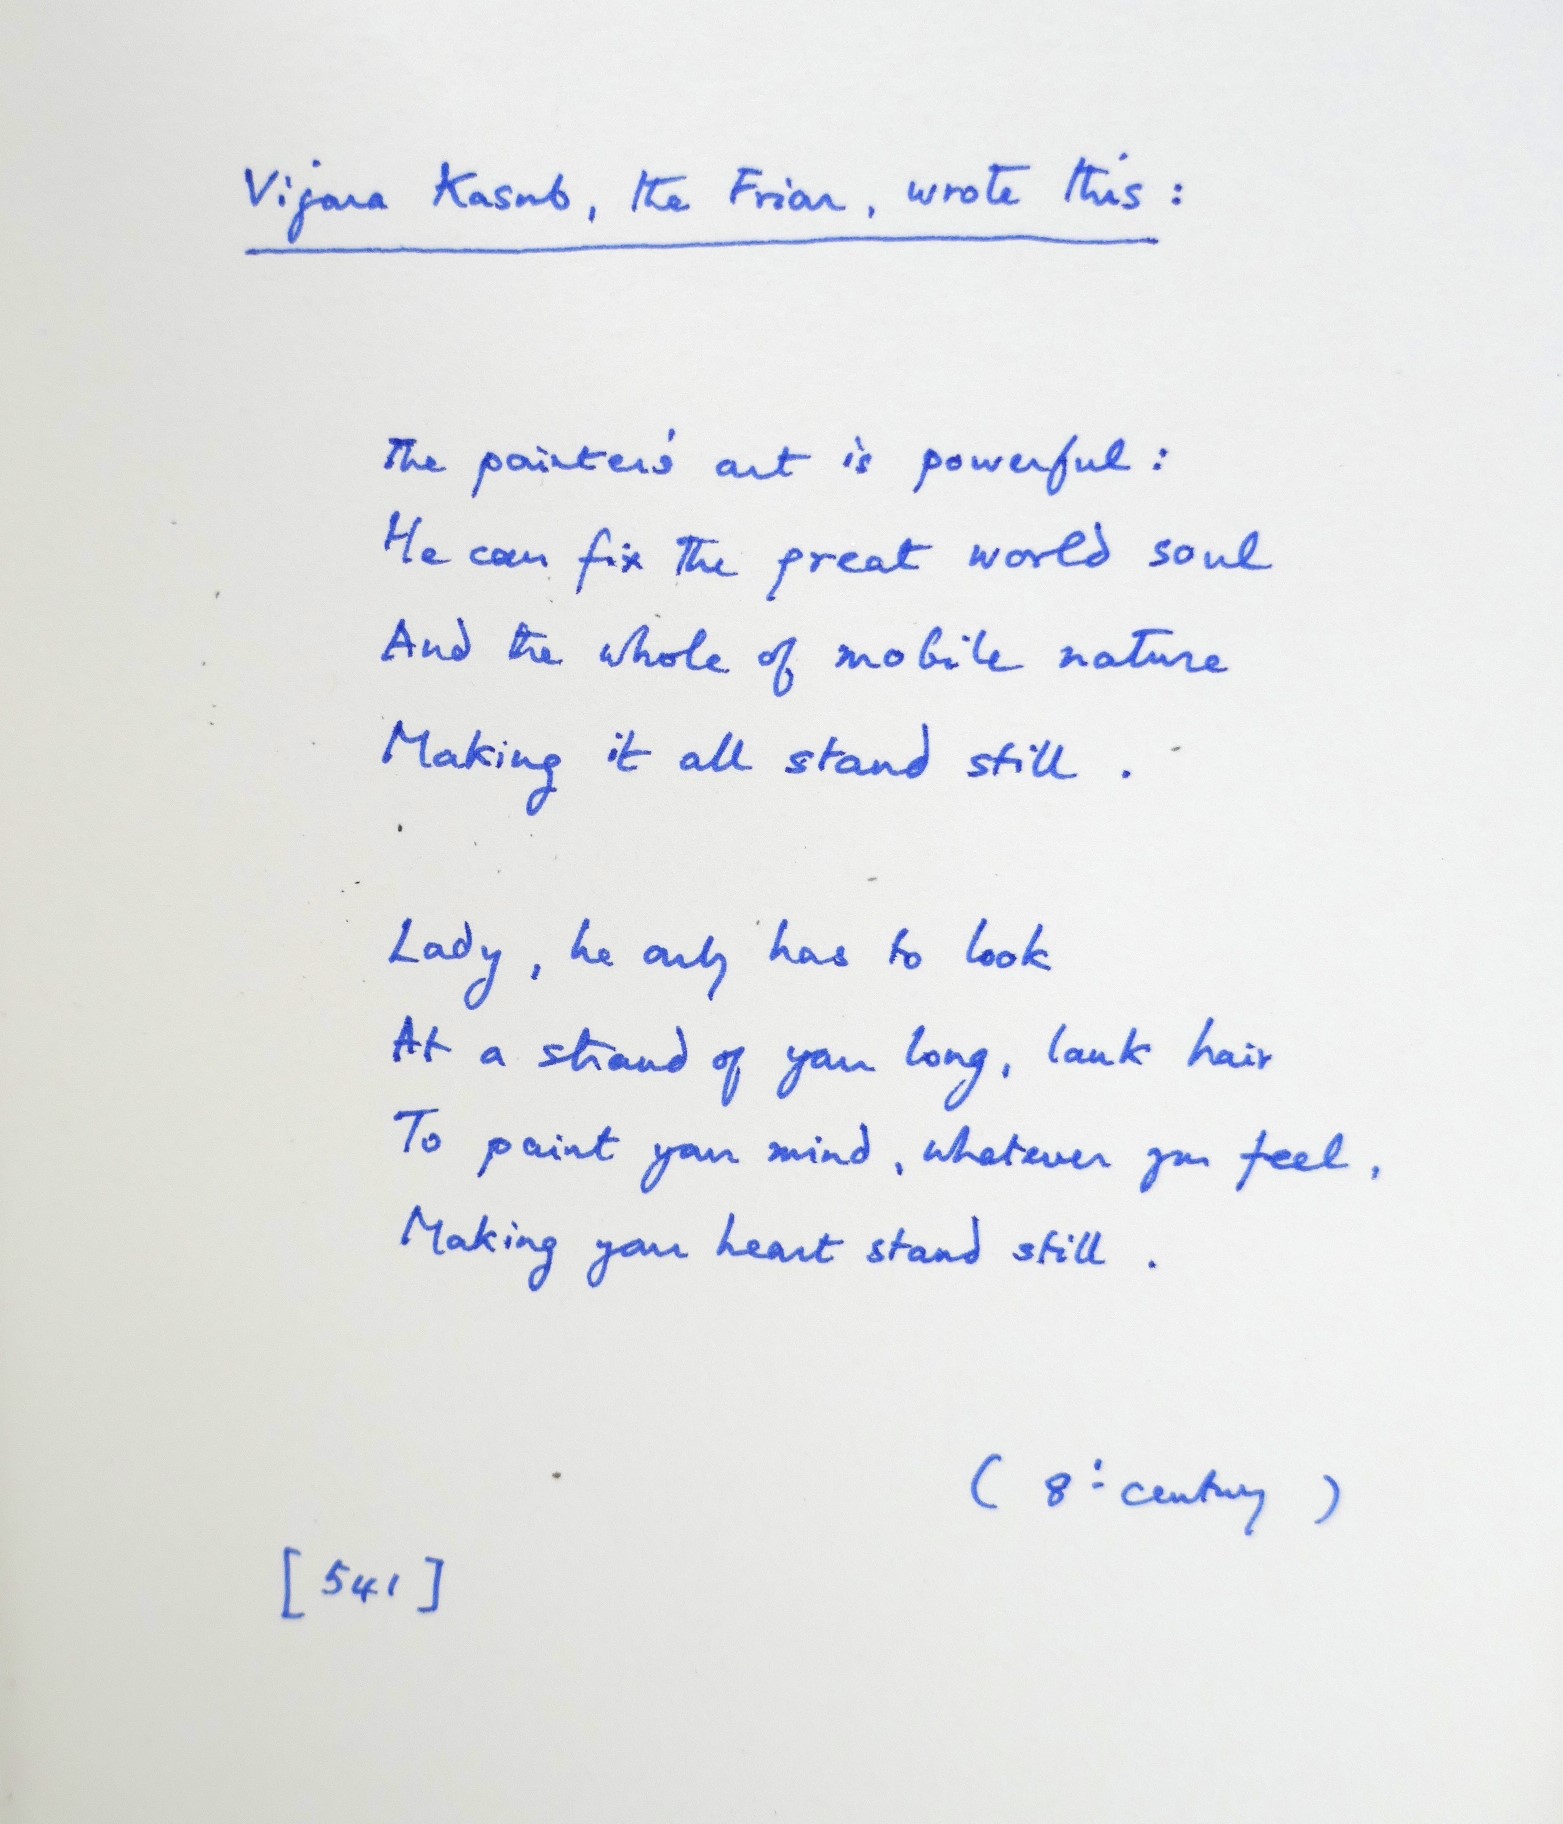 Vijara Kasub, the Friar, wrote this:
The painter's art is powerful:
He can fix the great world soul
And the whole of mobile nature
Making it all stand still.
Lady, he only has to look
At a strand of your long, lank hair
To paint your mind, whatever you feel,
Making your heart stand still.
(8: century)
[541]